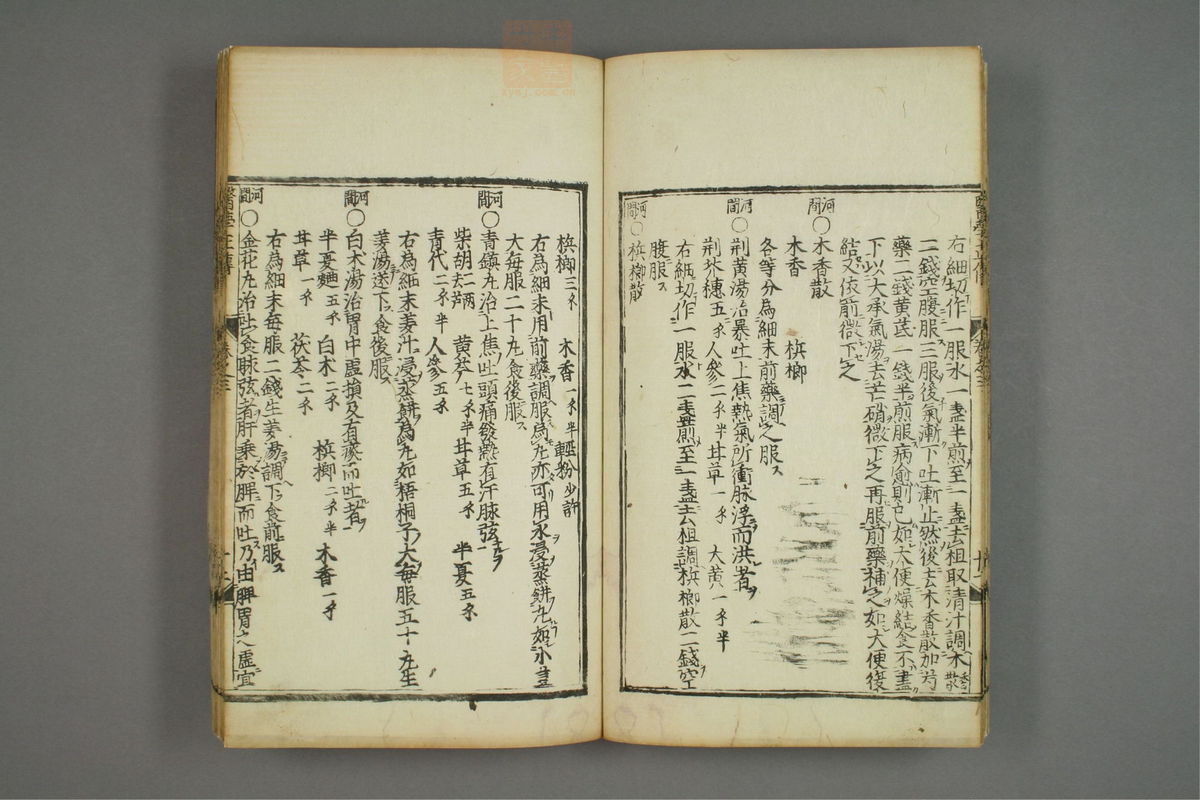 右細切作一服水一盞半煎至一盞去柤取清汁調木香散
二錢空腹服三服後氣漸下吐漸止然後去木香散加芍
藥二錢黃芪一錢半煎服病愈則已如大便燥結食不盡
下以大承氣湯去芒硝微下之再服前藥補之如大便復
結又依前微下之
河間○木香散
木香 梹榔
各等分為細末前藥調之服ス
河間○荊黃湯治暴吐上焦熱氣所衝脉浮而洪者
荊芥穗五錢 人參二錢半 甘草一錢 大黃一錢半
右細切作一服水二盞煎至一盞去柤調梹榔散二錢空
腹服ス
河間○梹榔散
梹榔三錢 木香一錢半 輕粉少許
右為細末用前藥調服為丸亦可用水浸蒸餅丸如小豆
大每服二十丸食後服ス
河間○青鎮丸治上焦吐頭痛發熱有汗脉弦
柴胡二兩 黃芩七錢半 甘草五錢 半夏五錢
青代二錢半 人參五錢
右為細末姜汁浸蒸餅為丸如梧桐子大每服五十丸生
姜湯送下食後服ス
河間○白朮湯治胃中虛損及有痰而吐者
半夏麯五錢 白朮二錢 梹榔二錢半 木香一錢
甘草一錢 茯苓二錢
右為細末每服二錢生姜湯調下食前服ス
河間○金花丸治吐食脉弦者肝乗於脾而吐乃由脾胃之虛宜
醫學正傳
卷之三